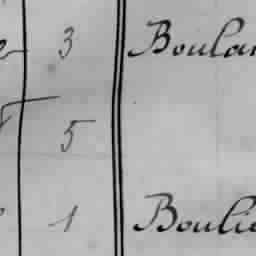 3 Boulan
5
1 Boulie